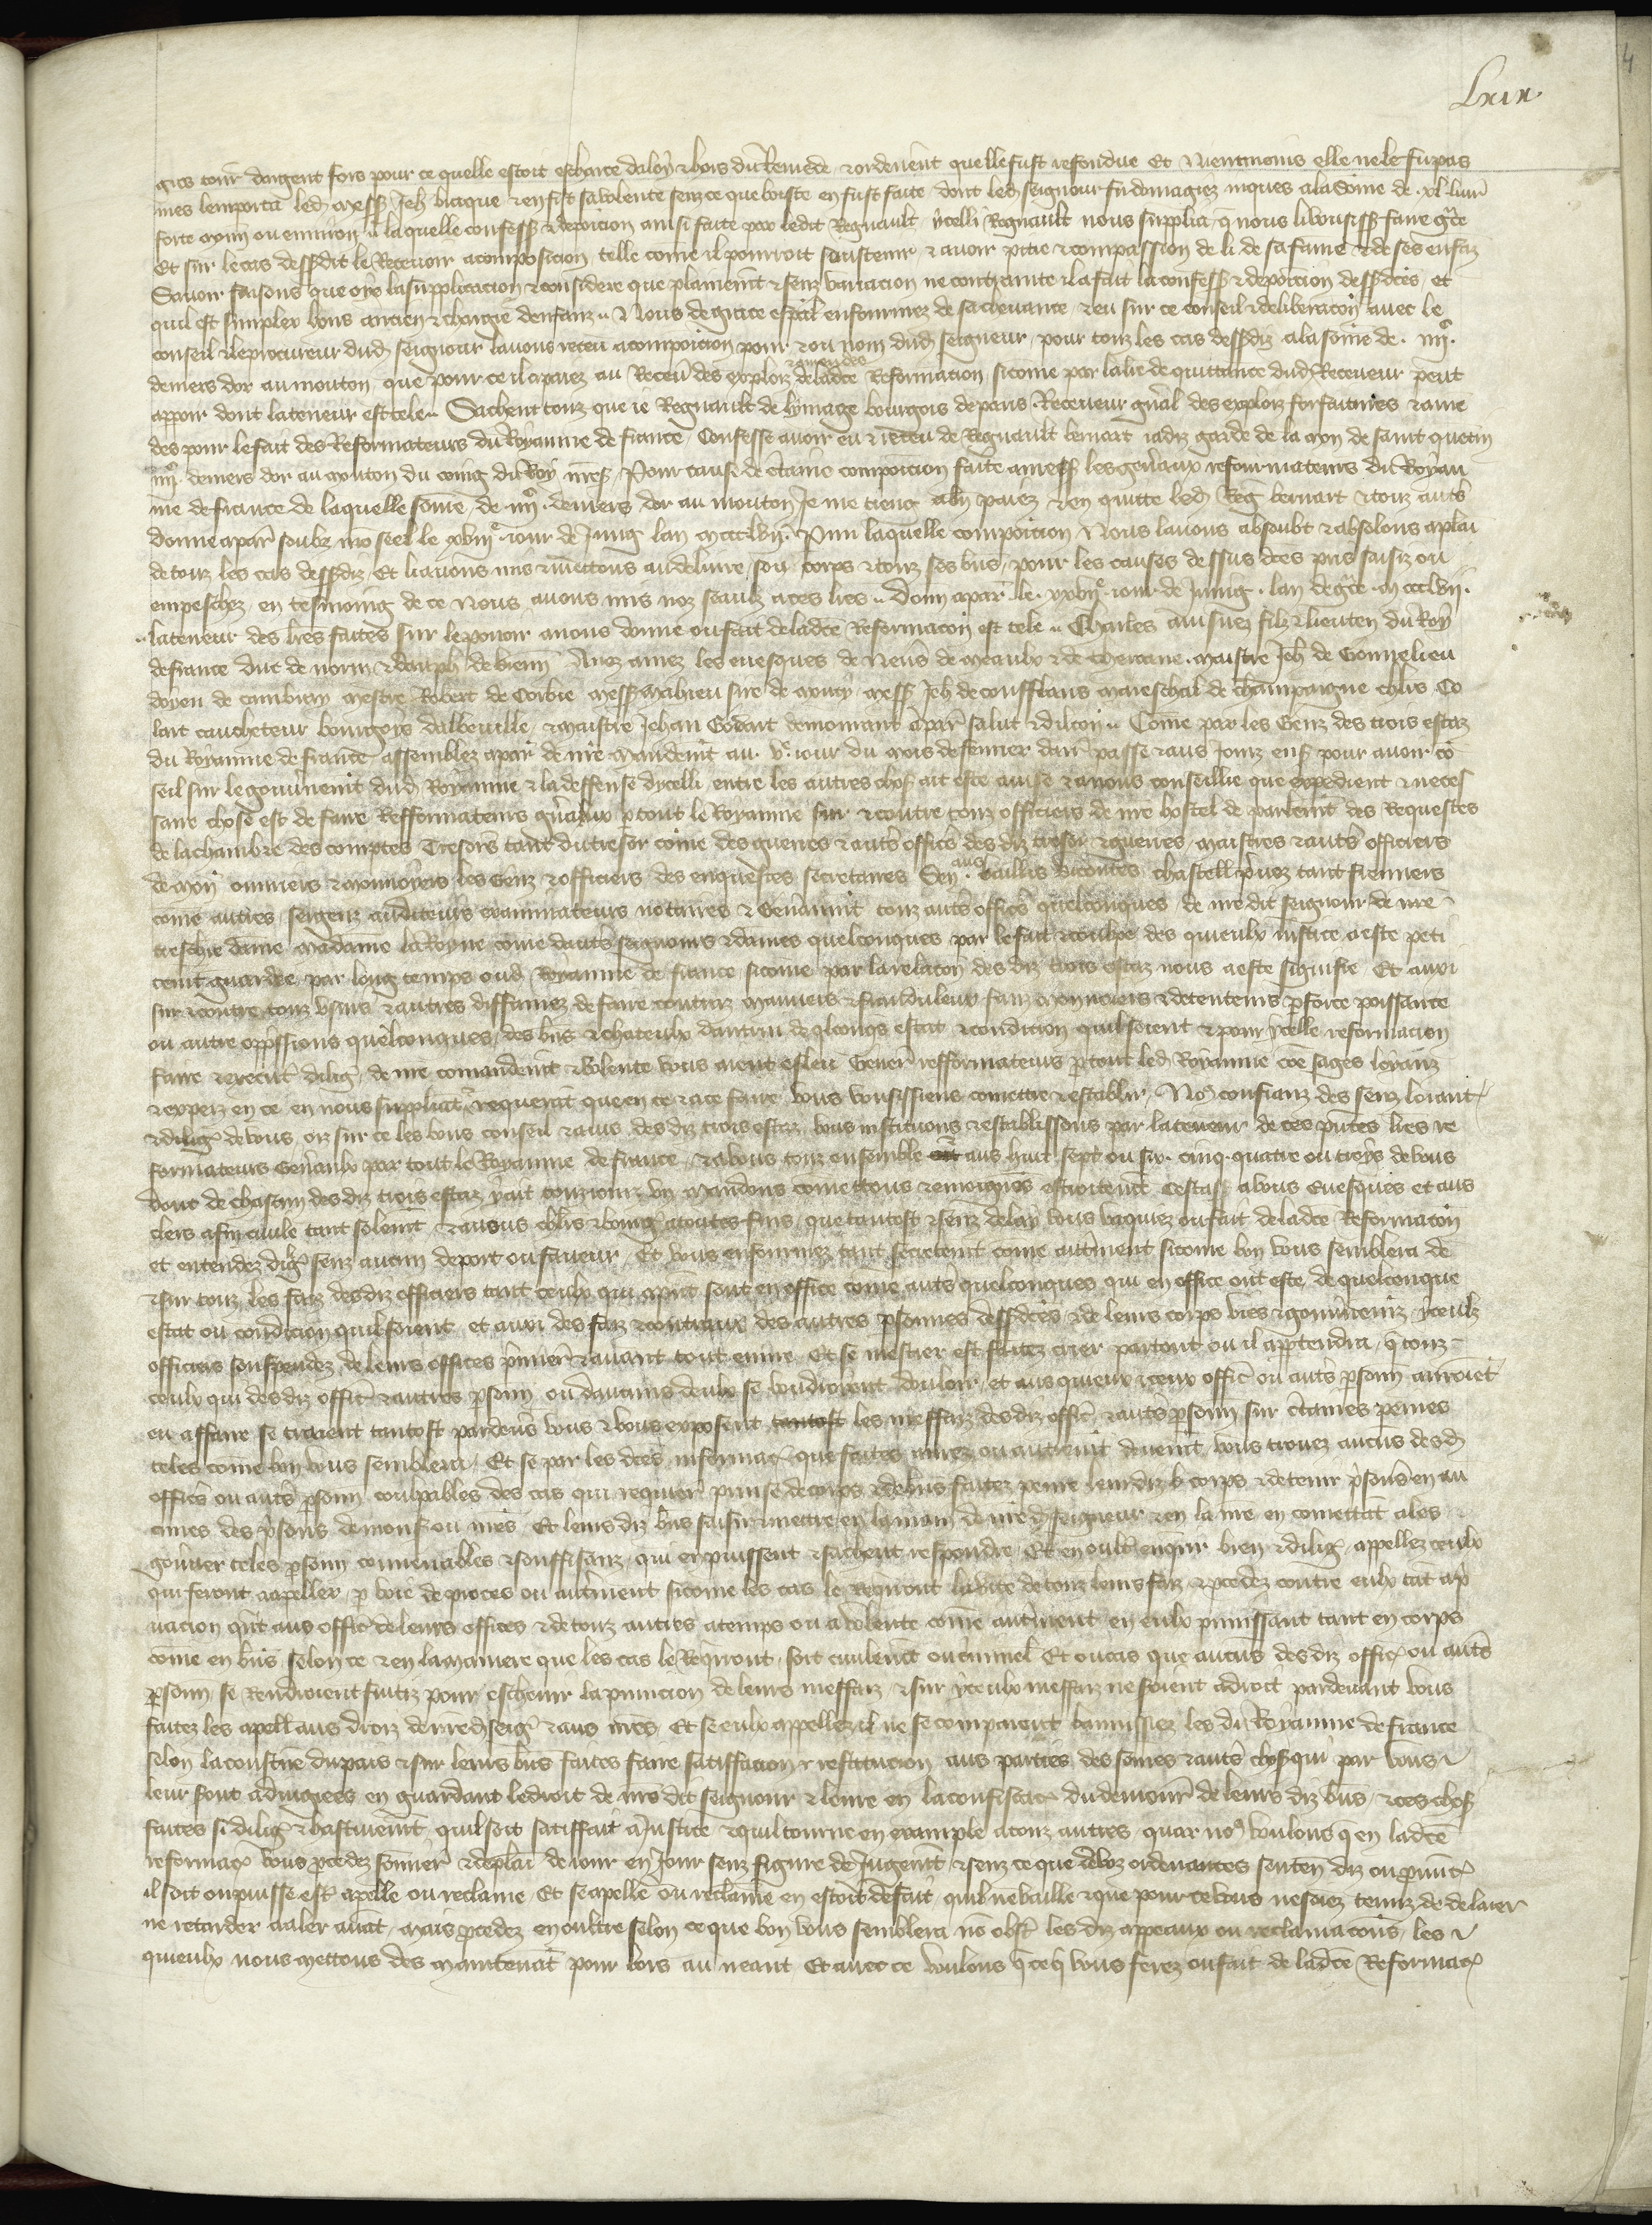 Lxix
gros tour dargent fors pour ce quelle estoit escharce daloy & hors du Remede & ordenent quelle fust refondue Et Nientmoins elle ne le fu pas
mes lemporta led mess Jeh et en fist sa volente senz ce que boiste en fust faite dont led seigneur fu domagiez iusques a la some de xl livr
forte mon ou environ a laquelle confess & deposicion ainsi faite par ledit Regnault ycelli Regnault nous supplia q nous li vousiss faire grace
Et sur le cas dessdit le Recevoir a composicion telle come il pourroit soustenir & avoir pitie & compassion de li de sa fame & de ses enfaz
Savoir faisons que oye la supplicacion & considere que plainemt & senz variacion ne contrainte il a fait la confess & deposicion dessdcés et
quil est simples homs ancien & chargie denfanz Nous de grace espal enfourmez de sa chevance & eu sur ce conseil & deliberacon avec le
conseil & le procureur dud seigneur lavons receu a composicion pour & ou nom dud seigneur pour touz les cas dessdiz a la some de iiijc
deniers dor au mouton que pour ce il a paiez au Receveur des exploiz & amendes de ladce Reformacion sicome par la lre de quittance dud Receveur peut
apparoir dont la teneur est tele Sachent touz que ie Regnault de lymage bourgois de paris Receveur gnal des exploiz forfaitures & amen
des pour le fait des Reformateurs du Royaume de france Confesse avoir eu & receu de Regnault bernart iadiz garde de la mon de saint quetin
iiijc deniers dor au mouton du coing du Roy nres Pour cause de ctaine composicion faite a mess les genaux refourmateurs du Royau
me de france de laquelle some de iiijc deniers dor au mouton Je me tieng a bn paiez & en quitte led Reg bernart & touz auts
donne a par soubz mo seel le xviije iour de Juing lan mccclvij Pmi laquelle composicion Nous lavons absoubt & absolons a plai
de touz les cas dessdiz Et li avons mis & mettons au delivre son corps & touz ses bns pour les causes dessus dces pris saisiz ou
empeschez en tesmoing de ce Nous avons mis noz seaulz a ces lres Donn a par le xxvije iour de Juing lan de gce mccclvij
la teneur des lres faites sur le povoir a nous donne ou fait de ladce Reformacon est tele Charles ainsnez filz & lieuten du Roy
de france duc de norm & dalph de vienn A noz amez les evesques de Nevs de meaulx & de therouane maistre Jeh de Gonnelieu
doyen de cambray mestre Robert de Corbie mess mahieu sire de moucy mess Jeh de conflans mareschal de champaigne chlrs Co
lart caucheteur bourgeys dabbeville & maistre Jehan Godart demorant a par salut & dilcon Come par les Genz des trois estaz
du Royaume de france assemblez a par de nre mandemt au ve iour du mois de fevrier darr passe & aus Jours ens pour avoir co
seil sur le gouvnemt dud Royaume & la deffense dycelli entre les autres chos ait este avise & a nous conseillie que expedient & neces
saire chose est de faire Refformateurs gnaulx p tout le Royaume sur & contre touz officiers de nre hostel de parlemt des Requestes
de la chambre des comptes Tresors tant du tresor come des guerres & auts offics des diz tresor & guerres maistres & auts officiers
de mon ouvriers & monnoiers les Genz & officiers des enquestes secretaires Sen baillis vicontes chastell pvoz tant fermiers
come autres sergenz auditeurs examinateurs notaires & Genalmt touz auts offics quelconques de nre dit seigneur de nre
treschre dame madame la Royne come dauts seigneurs & dames quelconques par le fait & coulpe des quieulx iustice a este peti
temt guardee par long temps oud Royaume de france sicome par la relacon des diz trois estaz nous a este signifie Et auxi
sur & contre touz usurs & autres diffamez de faire contraz mauvais & frauduleux faux monnoiers & detenteurs p force poissance
ou autre oppssions quelconques des bns & chateulx dautrui de qlconqs estat & condicion quil soient & pour ycelle reformacion
faire & execut dilig de nre comandemt & volente vous aient esleu Gener refformateurs p tout led Royaume coe sages loyaux
& expers en ce en nous suppliat & requerat que en ce & a ce faire vous vousissiens comettre & establir Nos confianz des senz loiaut
& dilig de vous oiz sur ce les bons conseil & avis des diz trois estaz vous instituons & establissons par la teneur de ces pntes lres re
formateurs Genaulx par tout le Royaume de france & a vous touz ensemble aus huit sept ou six cinq quatre ou troys de vous
dont de chascun des diz trois estaz y ait touziours un mandons comettons & enioignons estroitemt Cestass a vous Evesques et aus
clers a fin civile tant solemt & aus chlrs & bourg a toutes fins que tantost & senz delay vous vaquiez ou fait de ladce Reformacon
et entendez dilig senz aucun deport ou faveur Et vous enfourmez tant secretemt come autrement sicome bon vous semblera de
& sur touz les faiz des diz officiers tant ceulx qui a pnt sont en office come auts quelconques qui en office ont este de quelconque
estat ou condicion quil soient et auxi des faiz & contraux des autres psonnes dessdces & de leurs corps vies & gouvnemz yceulz
officiers souspendez de leurs offices pmier & avant tout euvre Et se mestier est faites crier partout ou il apptendra q touz
ceulx qui des diz offic & autres psonn ou daucuns deulx se voudroient douloir et aus quieux yceux offic ou auts psonn auroiet
eu affaire se traient tantost pardevs vous & vous exposent tantost les meffaiz des diz offic & auts psonn sur ctaines peines
teles come bon vous semblera Et se par les dces informac que faites aurez ou autremt deuemt vous trovez aucus desd
offics ou auts psonn coulpables des cas qui requier punise de corps & de bns faites penre leurdiz corps & detenir psons en au
cunes des psons de mons ou nres Et leurs diz bns saisir & mettre en la main de nre d seigneur & en la nre en comettat a les
gouvner celes psonn convenables & souffisanz qui en puissent & sachent respondre Et en oult enqrir bien & dilig appellez ceulx
qui seront a appeller p voie de proces ou autrement sicome les cas le Reqront la vite de touz leurs faiz & pcedez contre eulx tat a p
vacion qnt aus offic de leurs offices & de touz autres a temps ou a volente come autrement en eulx punissant tant en corps
come en bns selon ce & en la maniere que les cas le Reqront soit civilemt ou criminel Et ou cas que aucuns des diz offic ou auts
psonn se Rendroient fuitiz pour eschevir la punicion de leurs meffaiz & sur yceulx meffaiz ne soient a droit pardevant vous
faites les apell aus droiz de nred seig & aus nres Et se eulx appellez il ne se comparent bannissiez les du Royaume de france
selon la coustume du pais & sur leurs bns faites faire satiffacion & restitucion aus parties des somes & auts chos qui par vous
leur sont adiugiees en guardant le droit de nre dit seigneur & le nre en la confiscac du demour de leurs diz bns & ces chos
faites si dilig & hastivemt quil soit satiffait a Justice & quil tourne en example a touz autres quar nos voulons q en ladce
reformac vous pcedez somier & deplai de iour en Jour senz figure de Jugemt & senz ce que de voz ordenances senten diz ou pnunc
il soit ou puisse est apelle ou reclame Et se apelle ou reclame en estoit de fait quil ne vaille & que pour ce vous ne soiez tenuz de delaier
ne retarder a aler avat mais pcedez en oultre selon ce que bon vous semblera no obst les diz appeaux ou reclamacons les
quieulx nous mettons des maintenat pour lors au neant Et avec ce voulons q ce q vous ferez ou fait de ladce Reformac